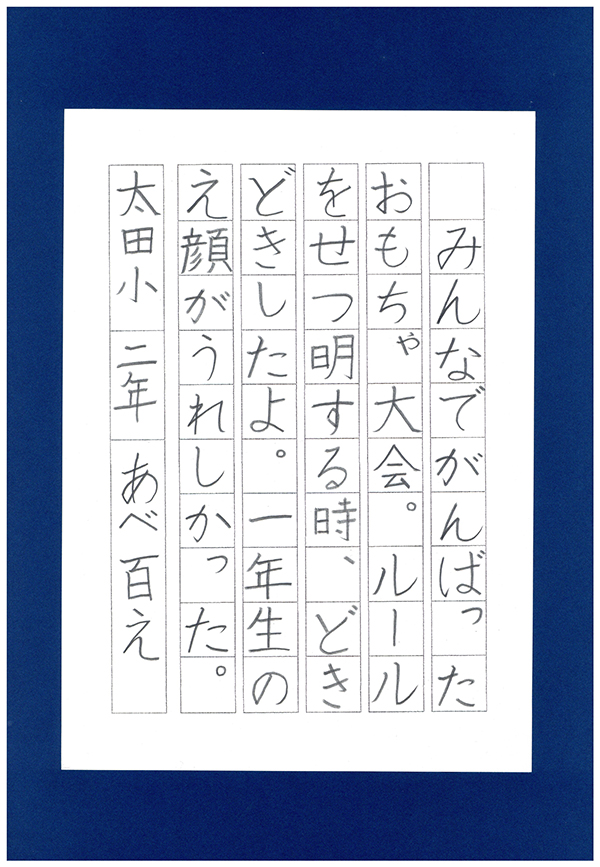 みんなでがんばった
おもちゃ大会。ルール
をせつ明する時、どき
どきしたよ。一年生の
え顔がうれしかった。
太田小 二年 あべ百え